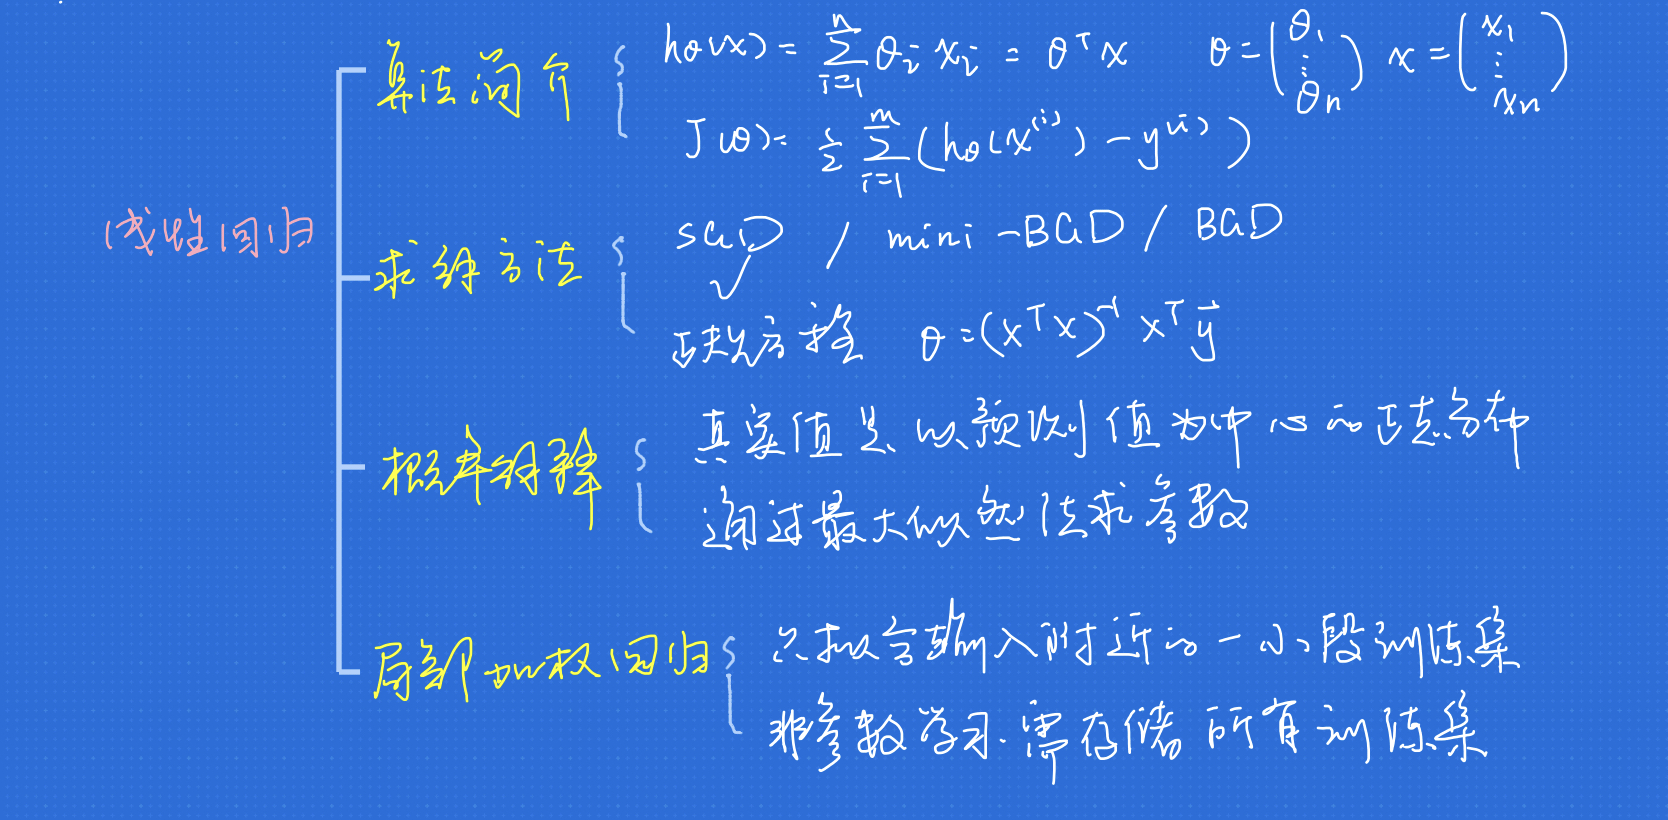 线性回归
算法简介
hθ(x) = ∑_{i=1}^{n} θ_i x_i = θ^T x   θ = (θ_1 ⋮ θ_n)   x = (x_1 ⋮ x_n)
J(θ) = 1/2 ∑_{i=1}^{m} (hθ(x^{(i)}) - y^{(i)})
求解方法
SGD / mini-BGD / BGD
✓
正规方程 θ = (x^T x)^{-1} x^T y⃗
概率解释
真实值是以预测值为中心的正态分布
通过最大似然法求参数
局部加权回归
只拟合输入附近的一小段训练集
非参数学习.需存储所有训练集